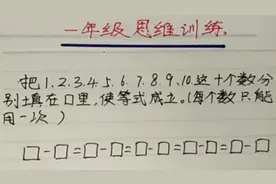 一年级思维训练
把1.2.3.4.5.6.7.8.9.10.这十个数分
别填在口里,使等式成立。(每个数只能
用一次)
□-□=□-□=□-□=□-□=□-□